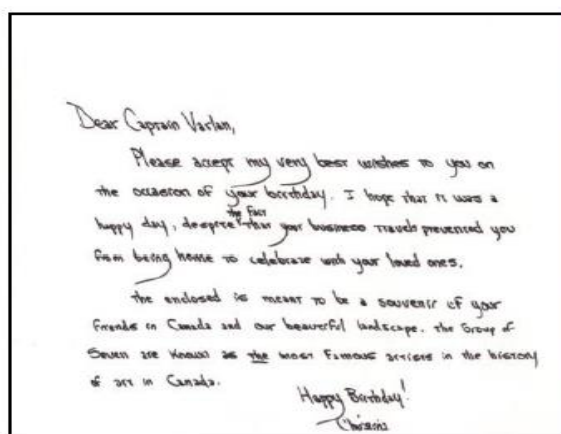 Dear Captain Varlan,
Please accept my very best wishes to you on
the occasion of your birthday. I hope that it was a
the fact
happy day, despite that your business travels prevented you
from being home to celebrate with your loved ones.
The enclosed is meant to be a souvenir of your
friends in Canada and our beautiful landscape. The Group of
Seven are known as the most famous artists in the history
of art in Canada.
Happy Birthday!